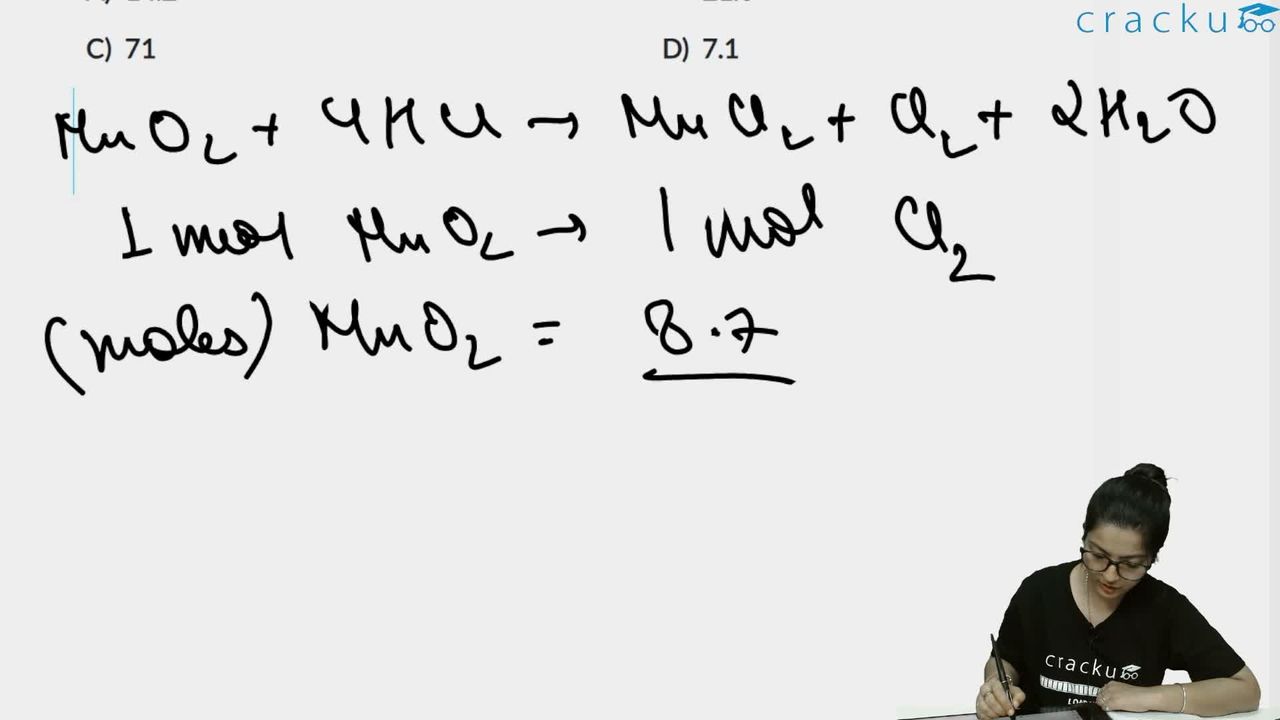 cracku
C) 71
D) 7.1
MnO2 + 4HCl → MnCl2 + Cl2 + 2H2O
1 mol MnO2 → 1 mol Cl2
(moles) MnO2 = 8.7
cracku